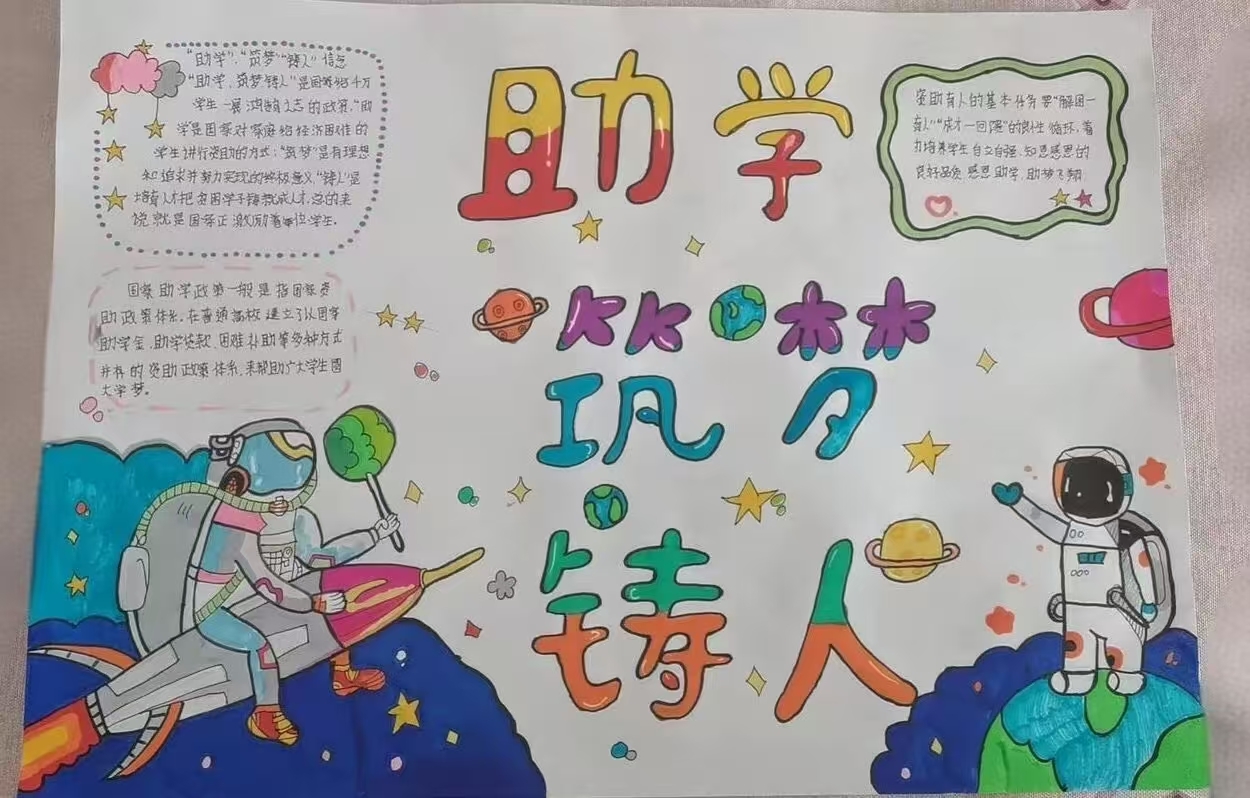 "助学"、"筑梦"铸人"信念
"助学、筑梦铸人"是国家给千万
学生一展鸿鹄之志的政策,"助
学是国家对家庭经济困难的
学生进行资助的方式;"筑梦"是有理想
和追求并努力实现的终极意义,"铸人"是
培育人才把贫困学子铸就成人才,总的来
说就是国家正激励着每位学生.
国家助学政策一般是指国家资
助政策体系.在普通高校建立了以国学
助学金、助学贷款、困难补助等多种方式
并存的资助政策体系,来帮助广大学生圆
大学梦。
助学
筑梦
铸人
资助育人的基本任务要"解困一
育人"成才一回馈"的良性循环,着
力培养学生自立自强、知恩感恩的
良好品质 感恩助学,助梦飞翔